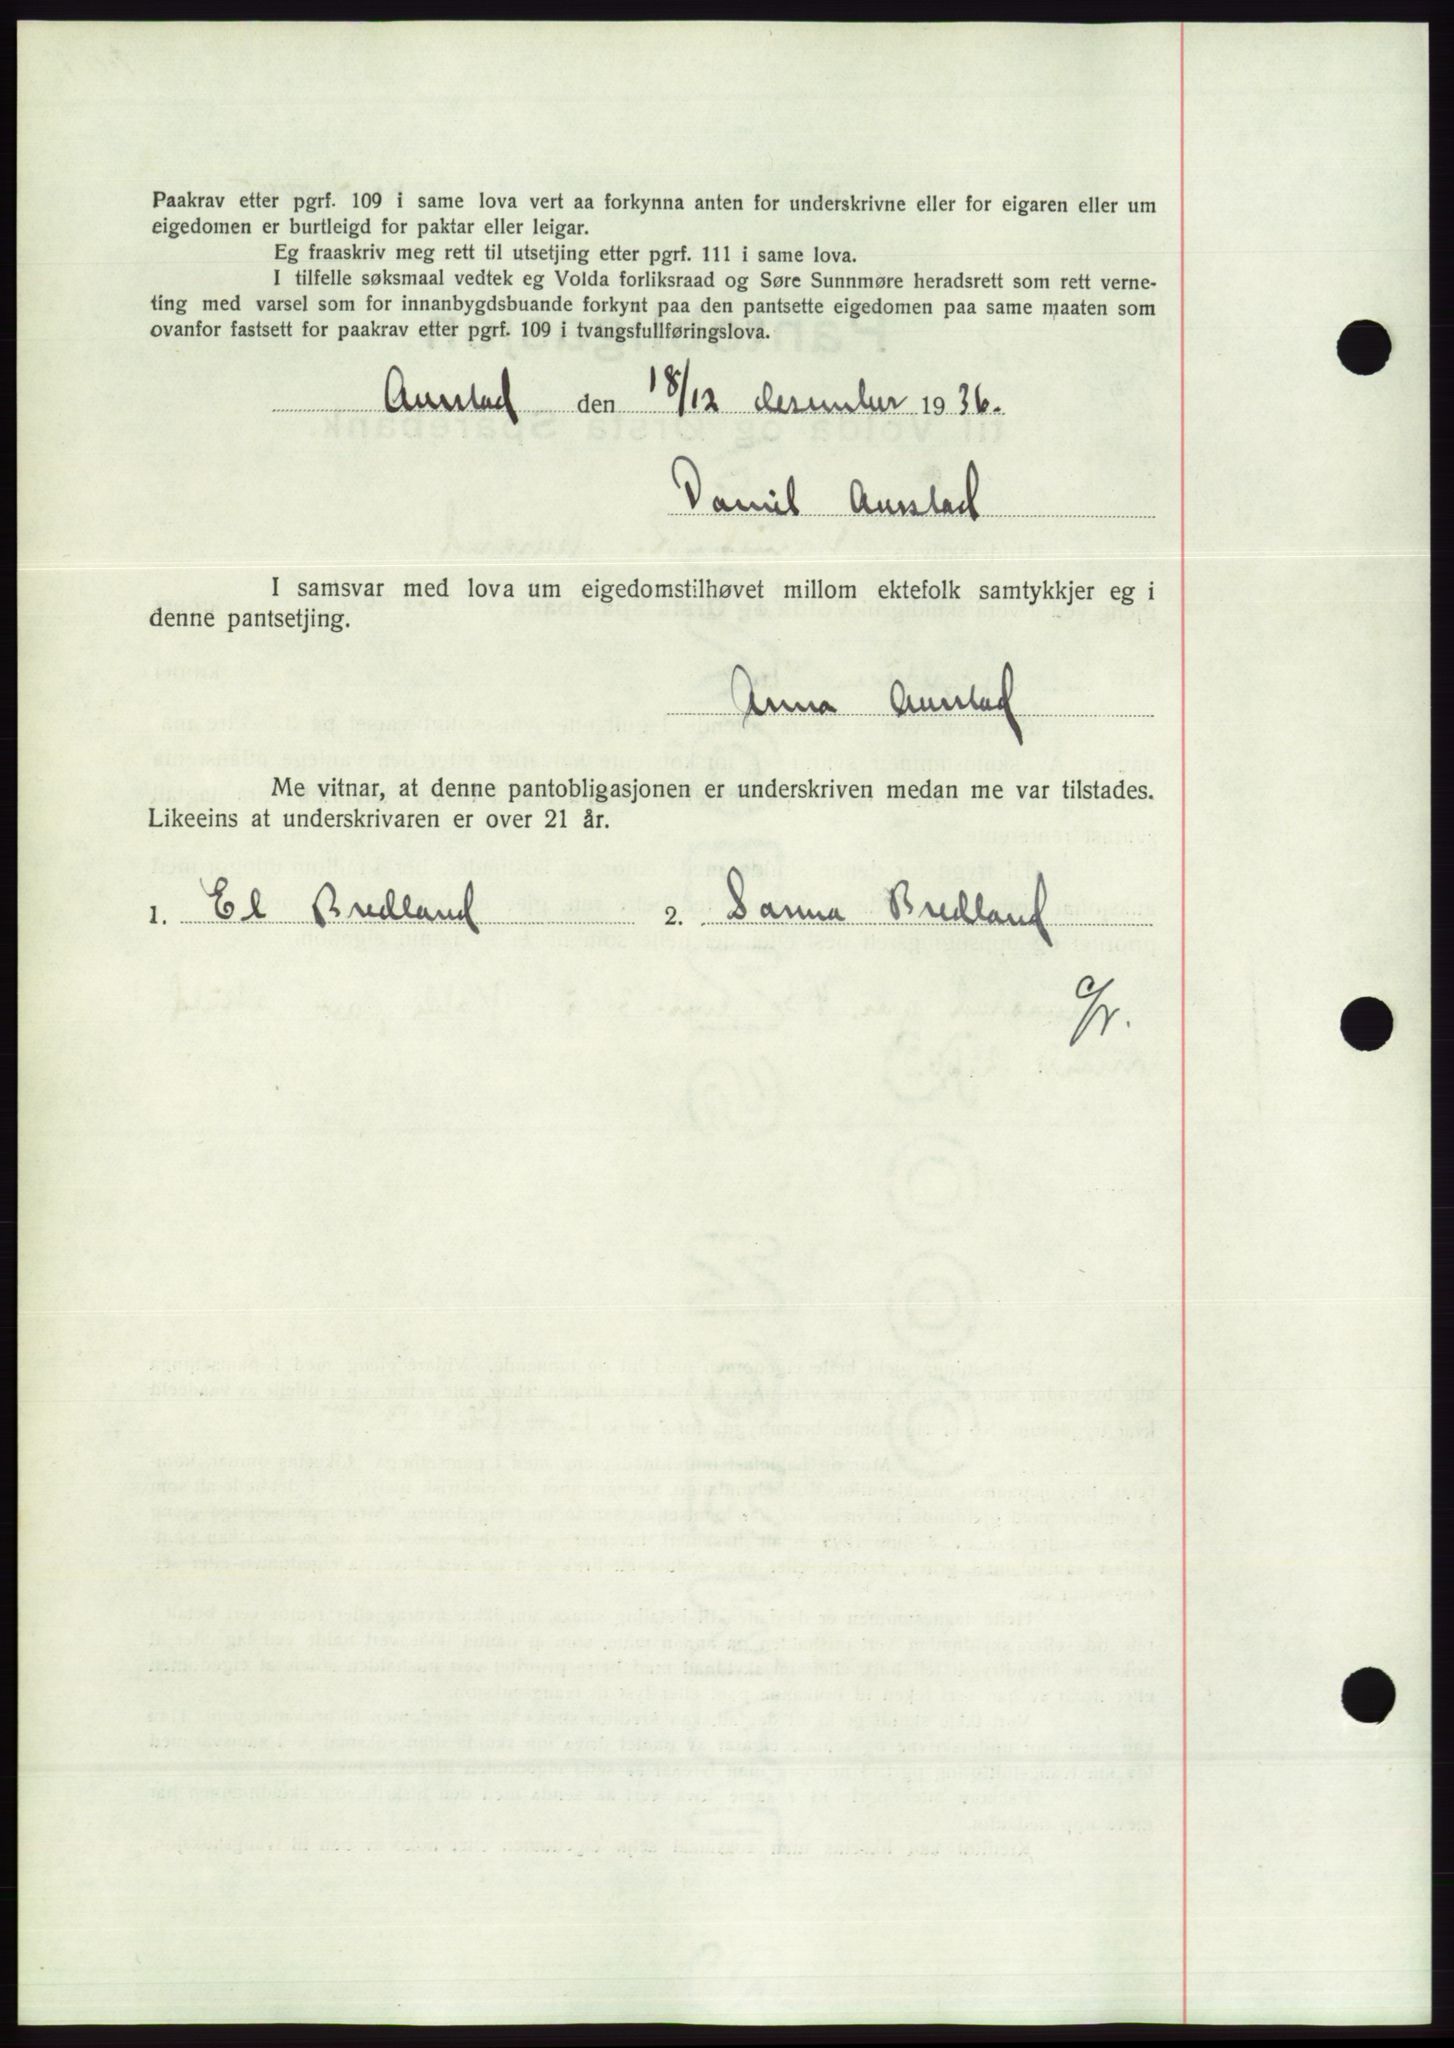 Paakrav etter pgrf. 109 i same lova vert aa forkynna anten for underskrivne eller for eigaren eller um
eigedomen er burtleigd for paktar eller leigar.
Eg fraaskriv meg rett til utsetjing etter pgrf. 111 i same lova.
I tilfelle søksmaal vedtek eg Volda forliksraad og Søre Sunnmøre heradsrett som rett verne-
ting med varsel som for innanbygdsbuande forkynt paa den pantsette eigedomen paa same maaten som
ovanfor fastsett for paakrav etter pgrf. 109 i tvangsfullføringslova.
Aurstad den 18/12 desember 1936.
Daniel Aurstad
I samsvar med lova um eigedomstilhøvet millom ektefolk samtykkjer eg i
denne pantsetjing.
Anna Aurstad
Me vitnar, at denne pantobligasjonen er underskriven medan me var tilstades.
Likeeins at underskrivaren er over 21 år.
1. El Bredland 2. Sanna Bredland